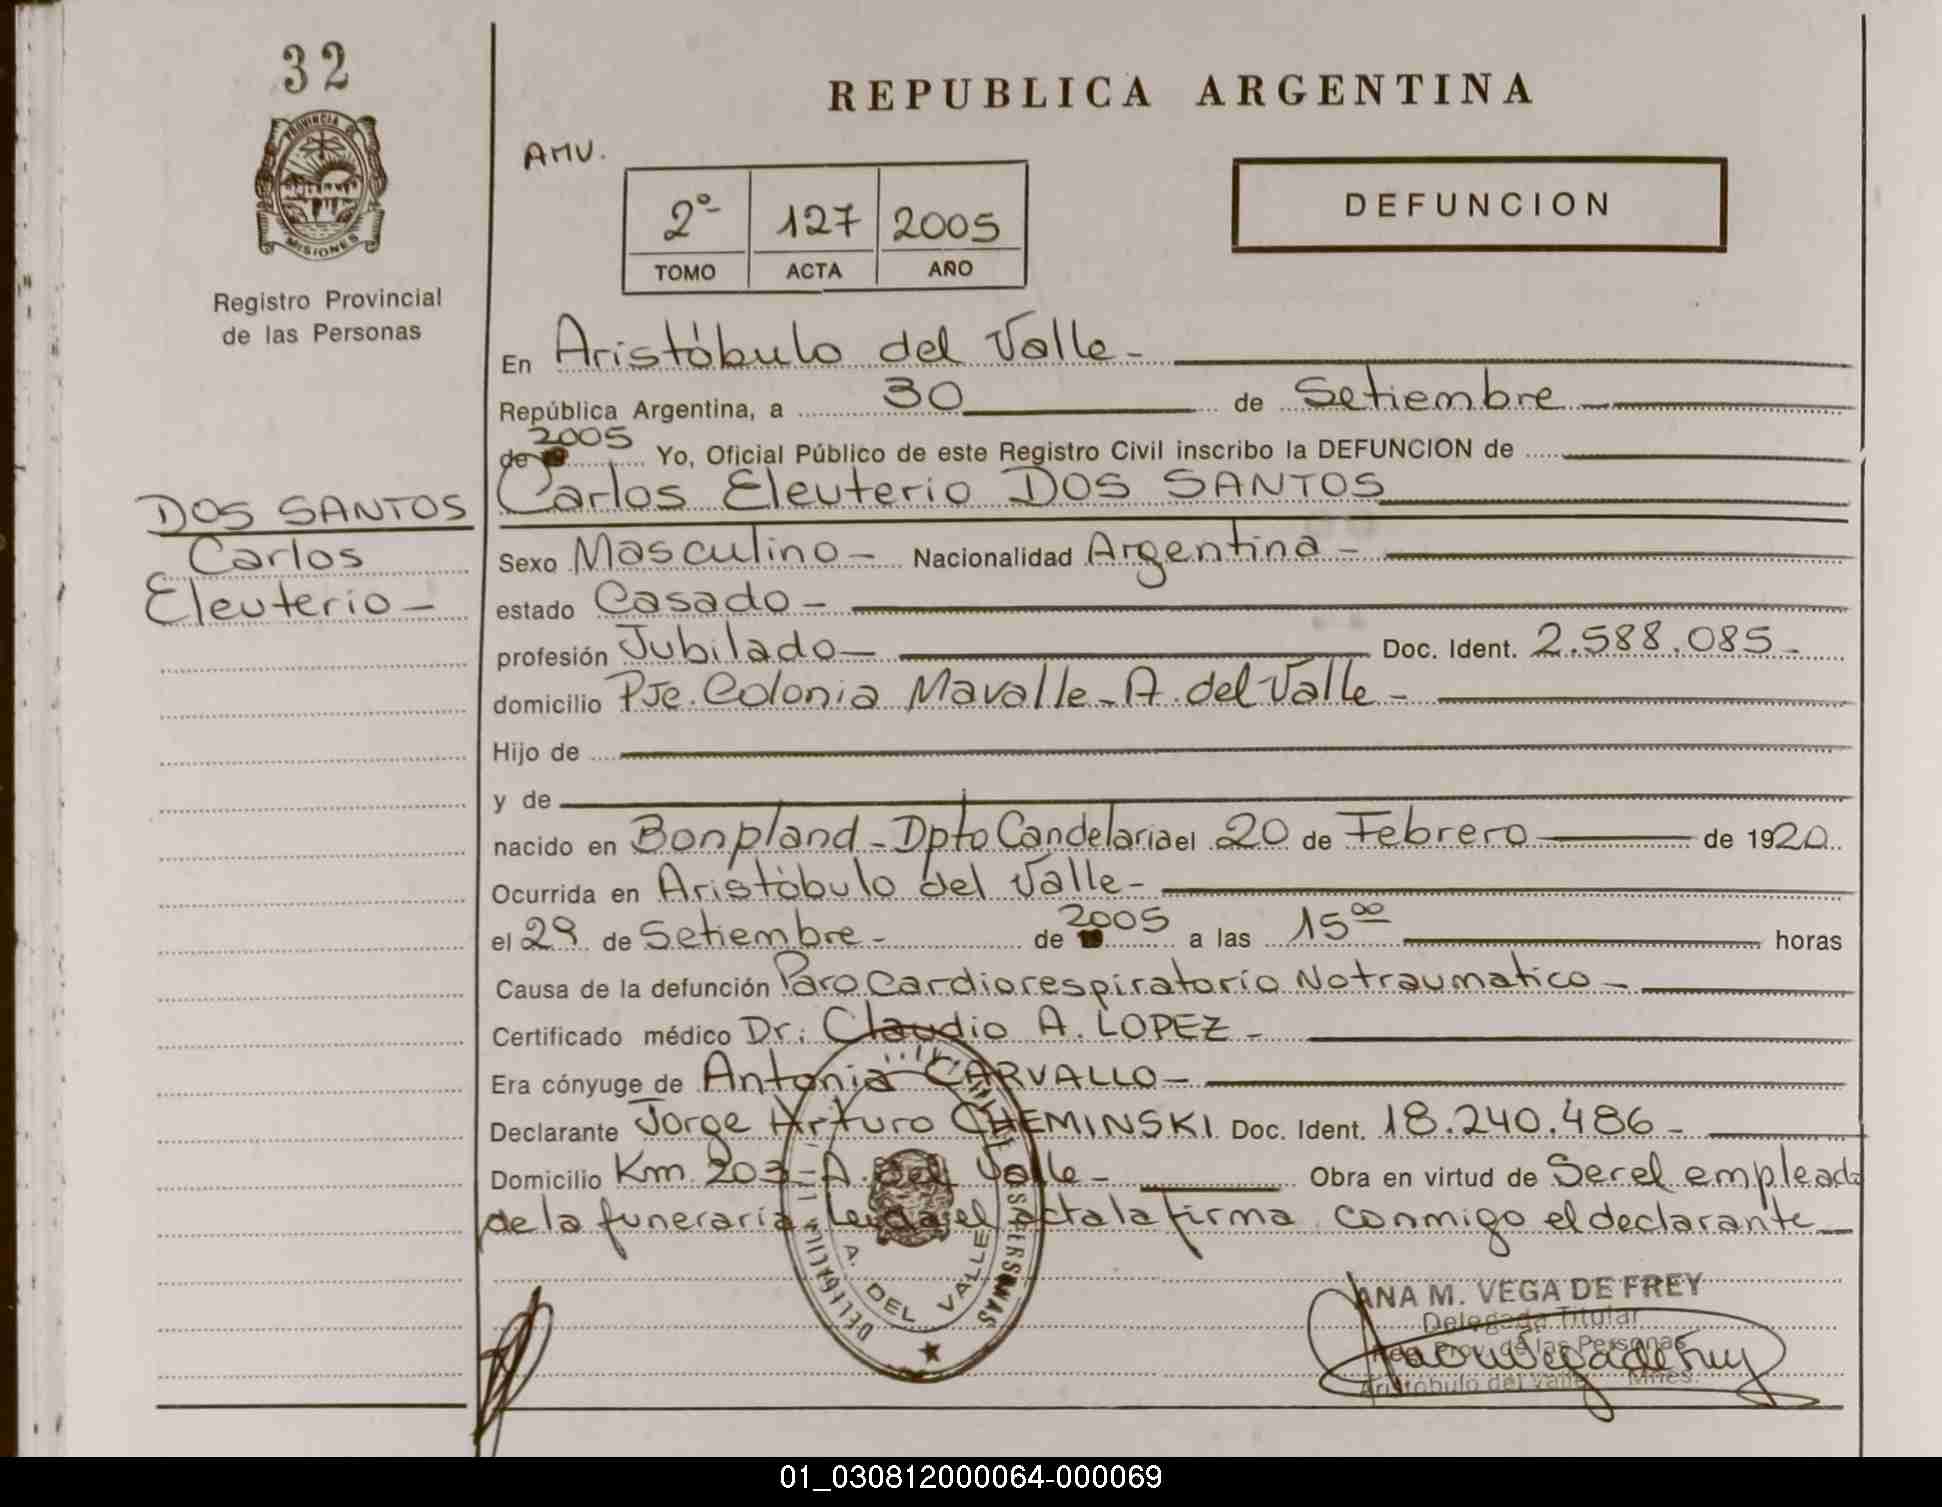 32
PROVINCIA DE
MISIONES
Registro Provincial
de las Personas
DOS SANTOS
Carlos
Eleuterio -
REPUBLICA ARGENTINA
AMV.
2º 127 2005
TOMO ACTA AÑO
DEFUNCION
En Aristóbulo del Valle -
República Argentina, a 30 de Setiembre
de 2005 Yo, Oficial Público de este Registro Civil inscribo la DEFUNCION de
Carlos Eleuterio DOS SANTOS
Sexo Masculino - Nacionalidad Argentina -
estado Casado -
profesión Jubilado - Doc. Ident. 2.588.085 -
domicilio Pje. Colonia Mavalle - A. del Valle -
Hijo de
y de
nacido en Bonpland - Dpto Candelaria el 20 de Febrero de 1920
Ocurrida en Aristóbulo del Valle -
el 29 de Setiembre - de 2005 a las 15⁰⁰ horas
Causa de la defunción Paro Cardiorespiratorio No traumatico -
Certificado médico Dr: Claudio A. LOPEZ -
Era cónyuge de Antonia CARVALLO -
Declarante Jorge Arturo CHEMINSKI Doc. Ident. 18.240.486 -
Domicilio Km 203 - A. del Valle - Obra en virtud de Ser el empleado
de la funeraria. Leida el acta la firma conmigo el declarante
A. DEL VALLE
ANA M. VEGA DE FREY
Delegada Titular
Prov. de las Personas
Aristóbulo del Valle Mnes.
01_030812000064-000069